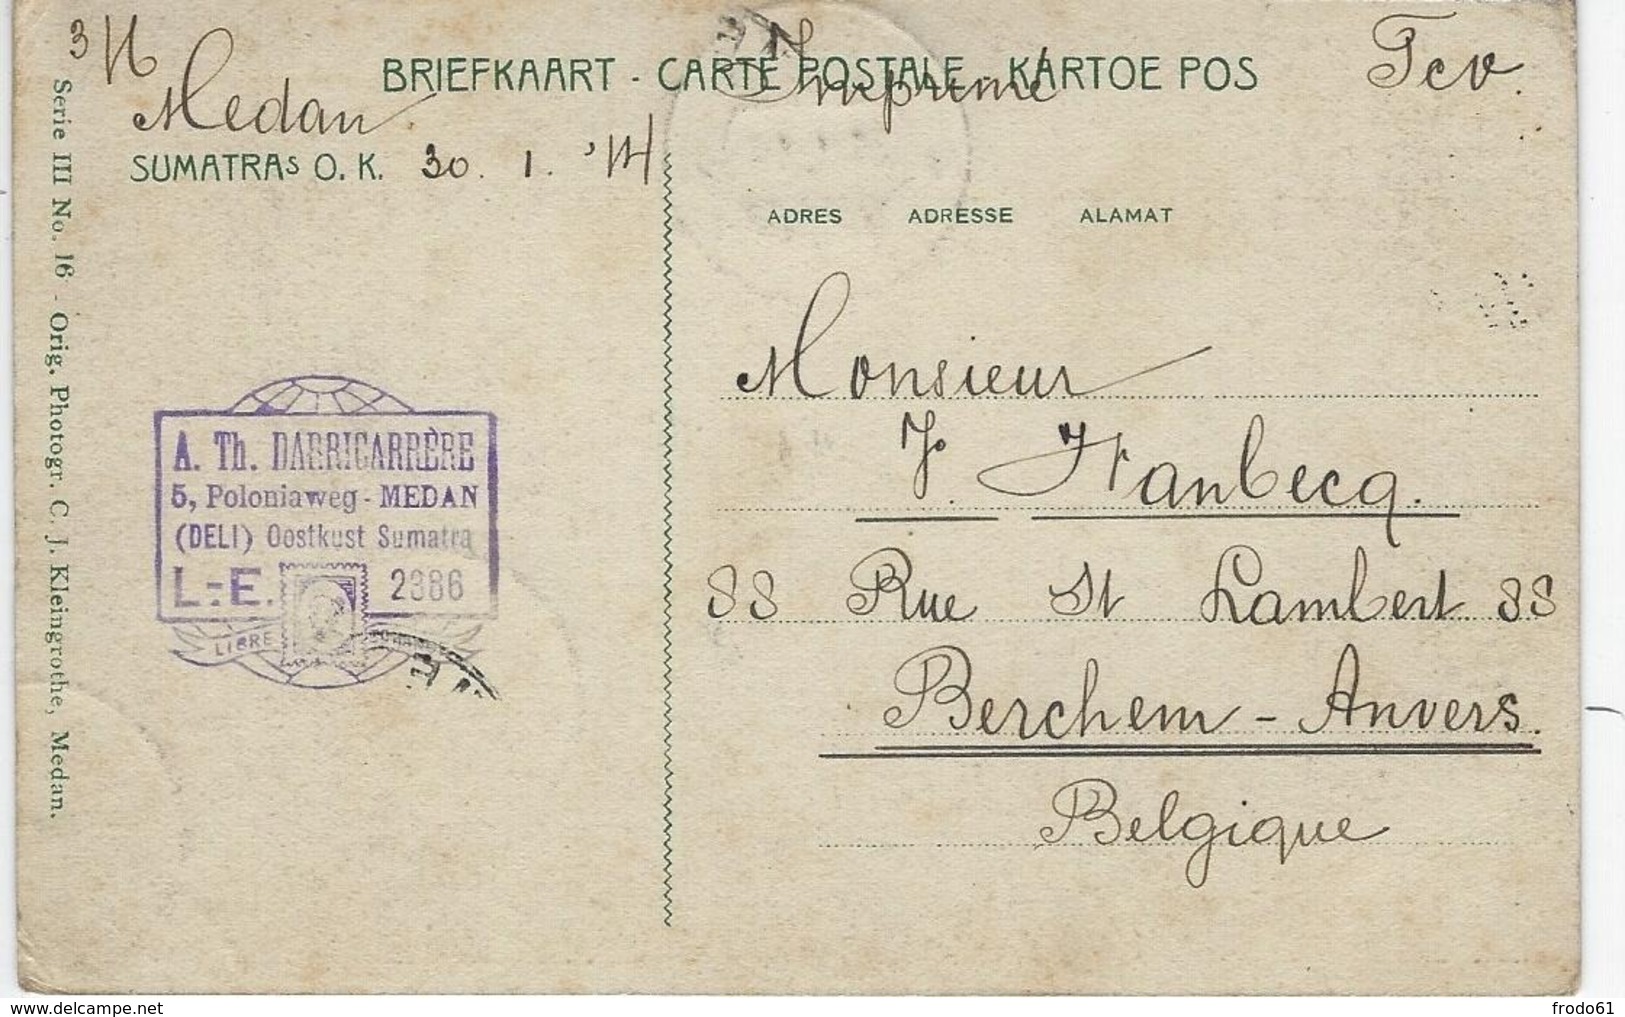 3/16
Imprimé
Tcv.
BRIEFKAART - CARTE POSTALE - KARTOE POS
Medan
SUMATRAs O. K. 30. 1. '14
ADRES ADRESSE ALAMAT
Serie III No. 16 - Orig. Photogr. C. J. Kleingrothe, Medan.
A. Th. DARRICARRÈRE
5, Poloniaweg - MEDAN
(DELI) Oostkust Sumatra
L.-E. 2386
LIBRE
Monsieur
J. Hanbecq.
88 Rue St Lambert 88
Berchem - Anvers.
Belgique
https://www.delcampe.net
frodo61